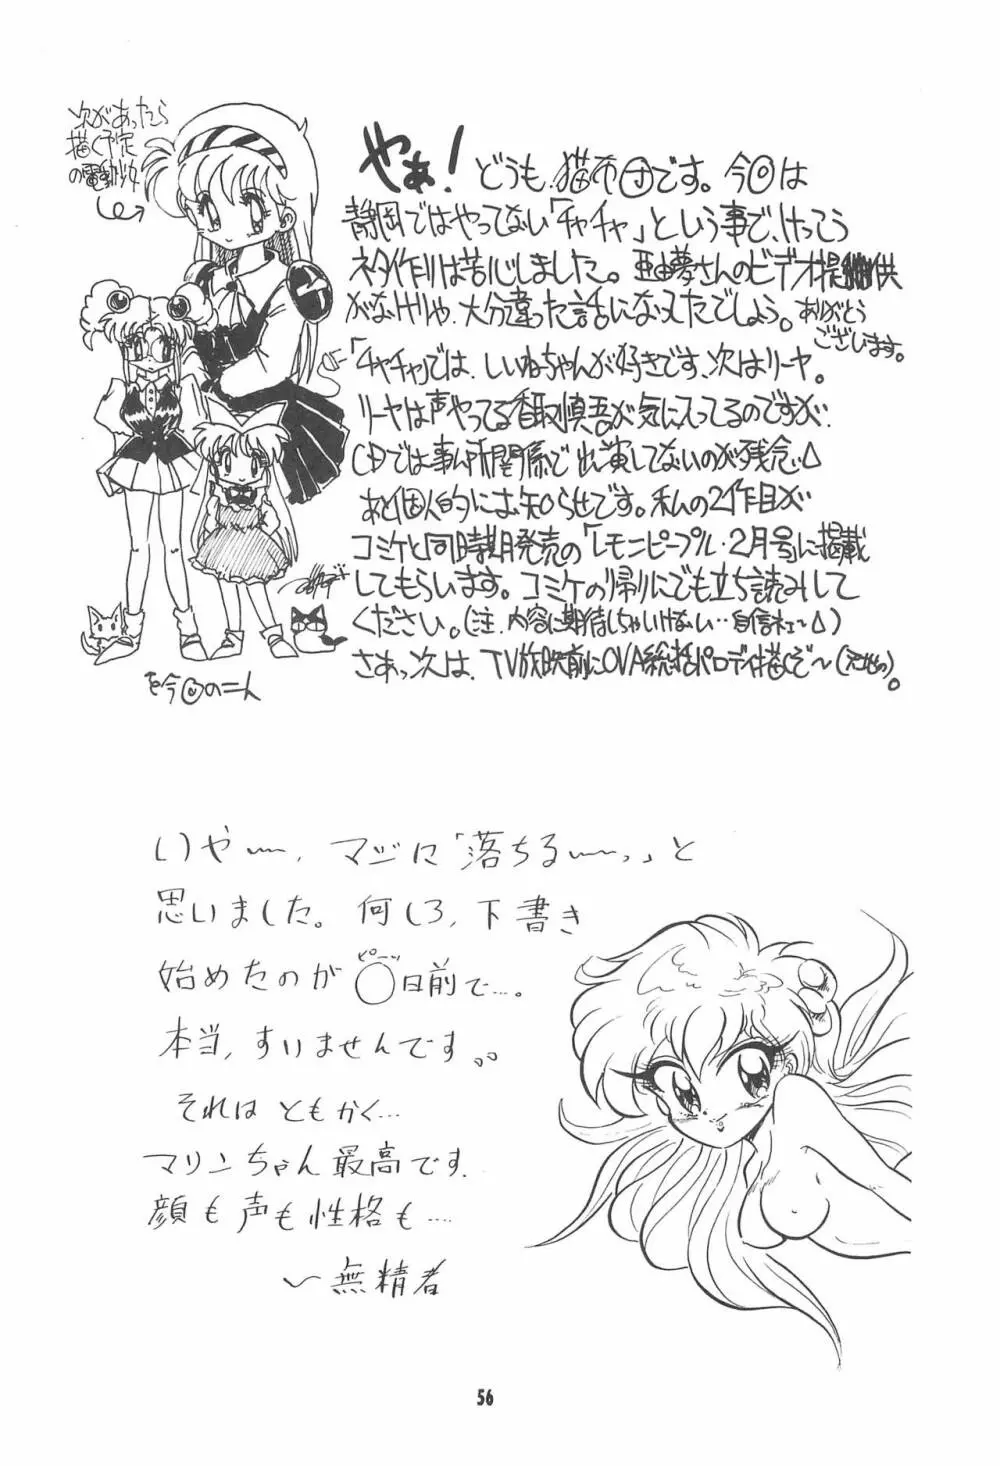 次があったら
描く予定
の電動少女
やぁ! どうも、猫布団です。今回は
静岡ではやってない「チャチャ」という事で、けっこう
ネタ作りは苦心しました。亜由夢さんのビデオ提供
がなけりゃ、大分違った話になってたでしょう。ありがとう
ございます。
「チャチャ」では、しいねちゃんが好きです、次はリーヤ。
リーヤは声やってる香取慎吾が気に入ってるのですが、
CDでは事ム所関係で出演してないのが残念。
あと個人的にお知らせです。私の2作目が
コミケと同時期発売の「レモンピープル・2月号」に掲載
してもらいます。コミケの帰りにでも立ち読みして
ください。(注、内容に期待しちゃいけない…自信ネェ〜)
さぁっ、次は、TV放映前にOVA総括パロディ描くぞ〜(天地の)。
を今回の二人
いや〜、マジに「落ちる〜っ」と
思いました。何しろ、下書き
始めたのが ピーッ
◯日前で…。
本当、すいませんです。。
それは ともかく…
マリンちゃん最高です。
顔も声も性格も…
〜無精者
56